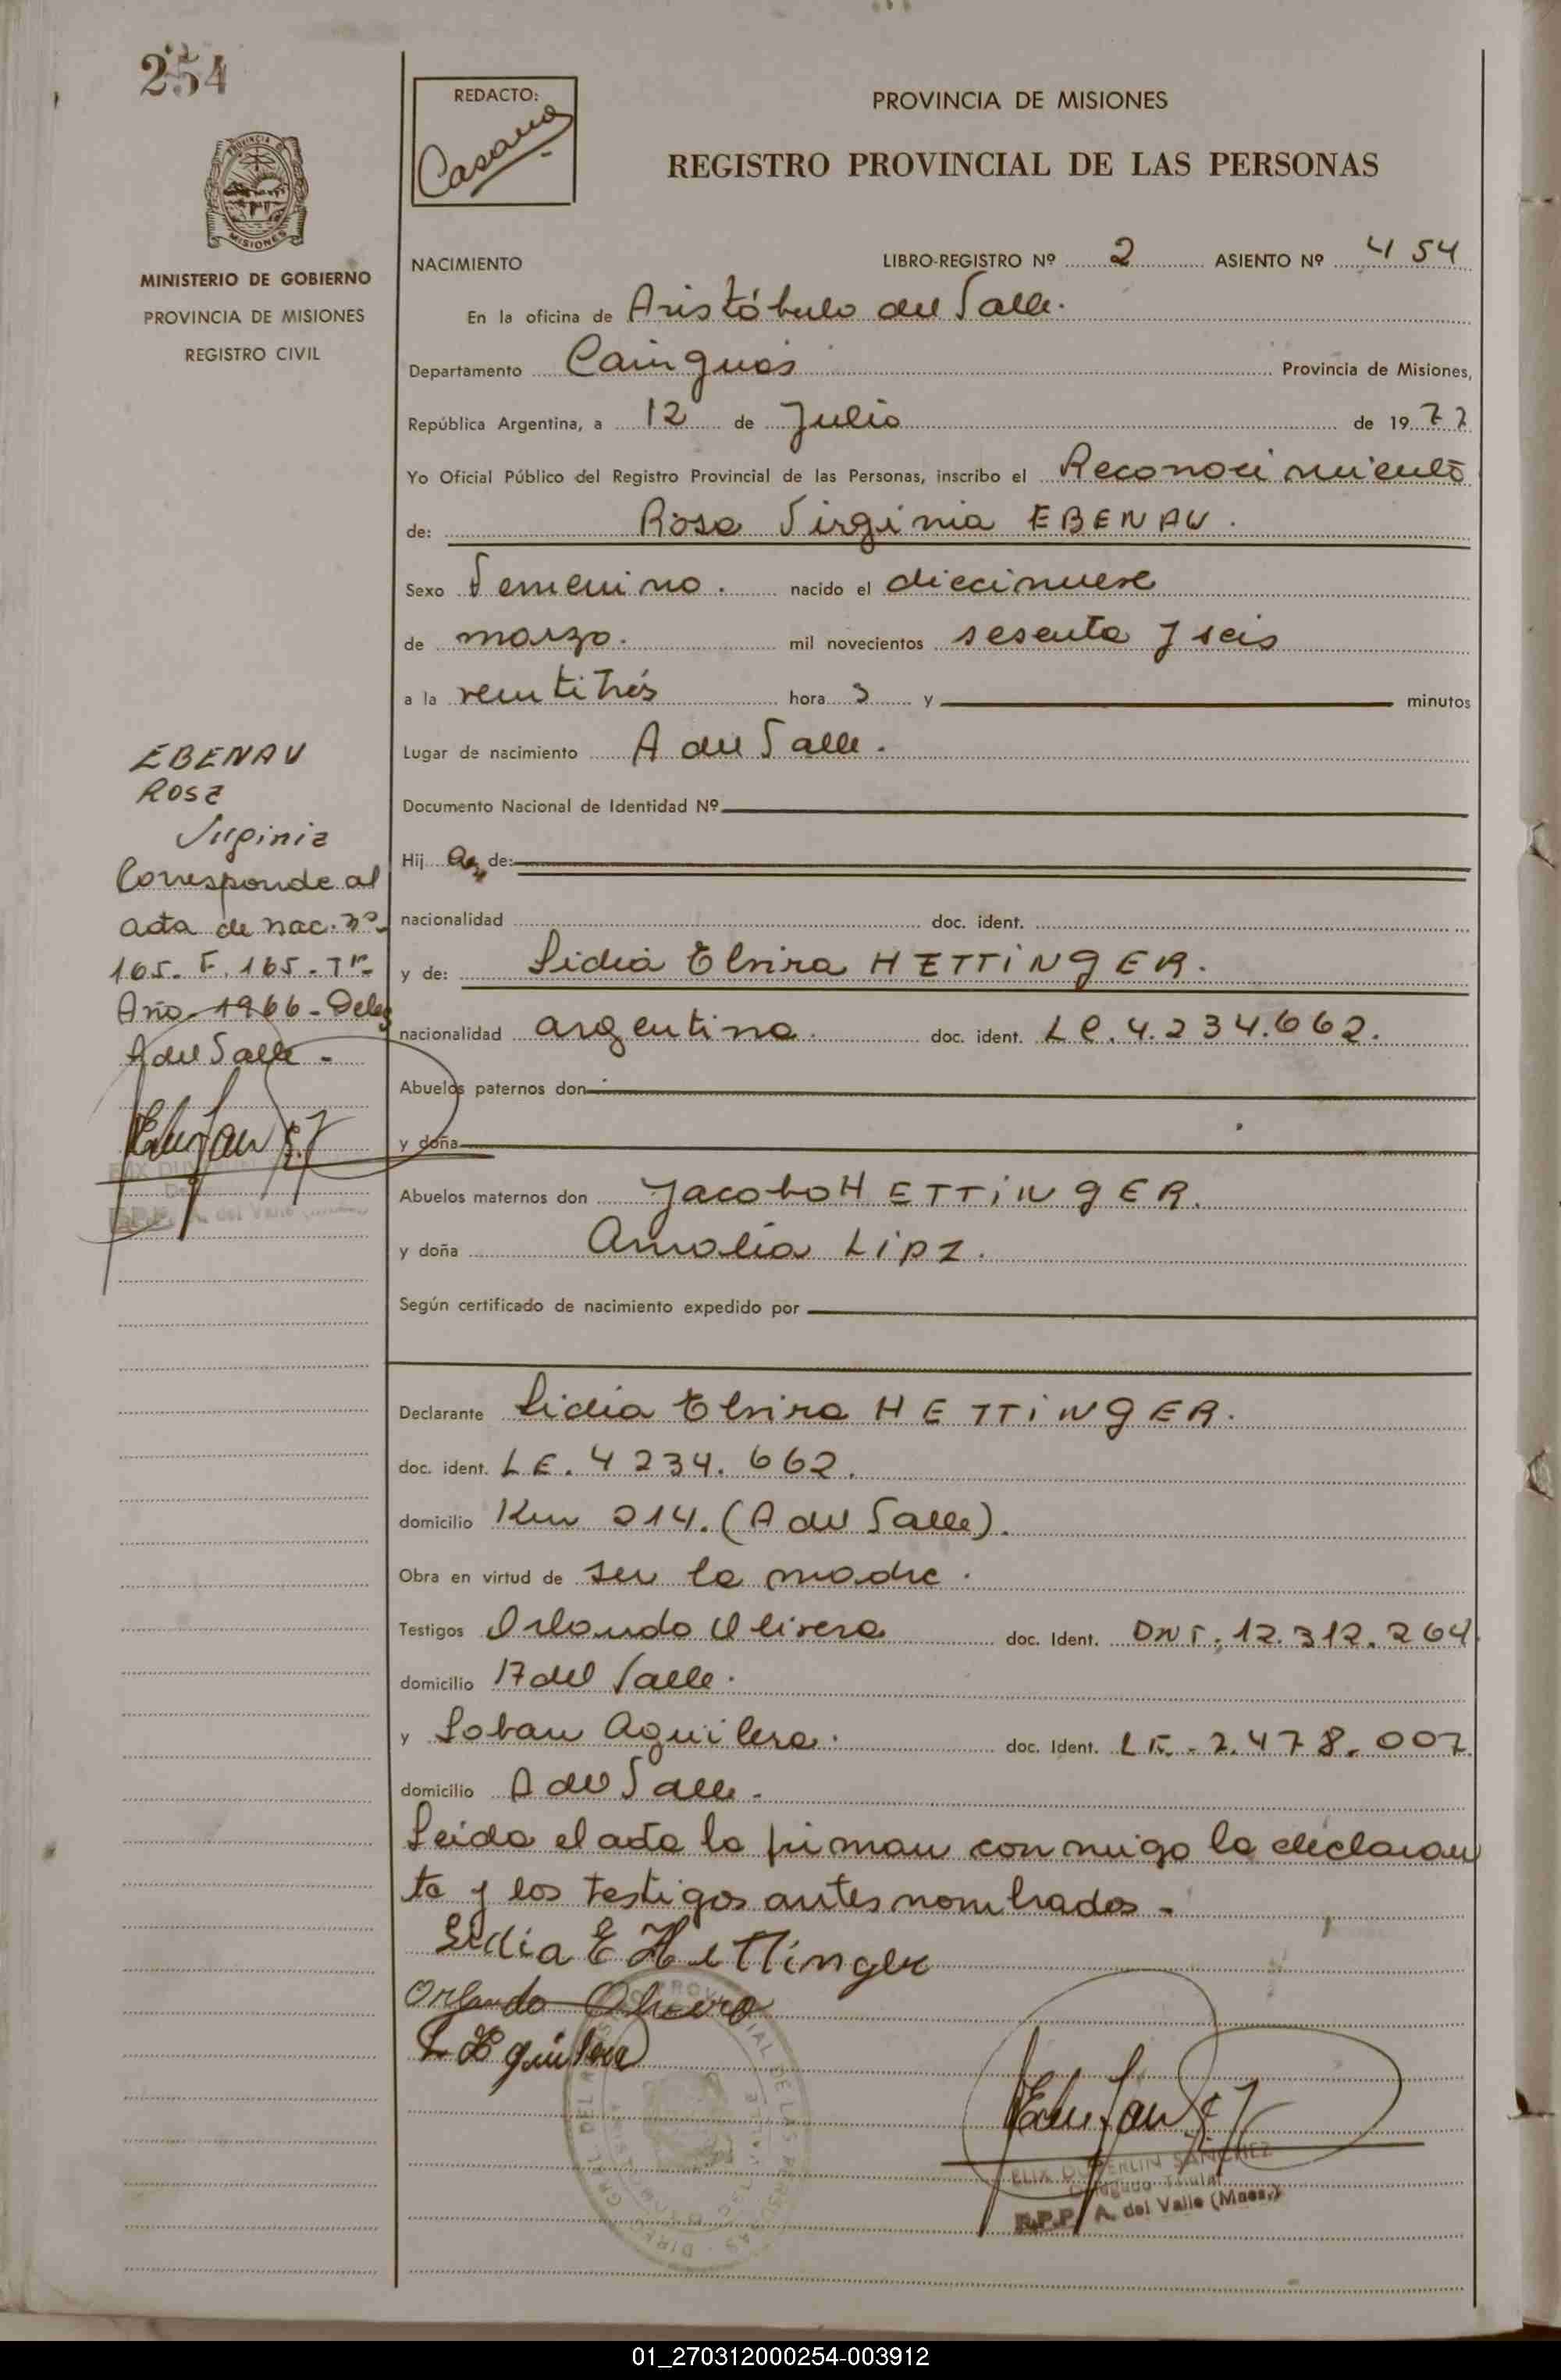 254
REDACTO:
Casana
PROVINCIA DE MISIONES
REGISTRO PROVINCIAL DE LAS PERSONAS
MISIONES
MINISTERIO DE GOBIERNO
PROVINCIA DE MISIONES
REGISTRO CIVIL
NACIMIENTO LIBRO-REGISTRO Nº 2 ASIENTO Nº 454
En la oficina de Aristóbulo del Valle.
Departamento Cainguás Provincia de Misiones,
República Argentina, a 12 de Julio de 1977
Yo Oficial Público del Registro Provincial de las Personas, inscribo el Reconocimiento
de: Rosa Virginia EBENAU.
Sexo Femenino. nacido el diecinueve
de marzo. mil novecientos sesenta y seis
a la veintitrés hora s y minutos
Lugar de nacimiento A del Valle.
Documento Nacional de Identidad Nº
Hij a de:
nacionalidad doc. ident.
y de: Lidia Elvira HETTINGER.
nacionalidad argentina. doc. ident. LC. 4.234.662.
Abuelos paternos don
y doña
Abuelos maternos don Jacobo HETTINGER.
y doña Amalia Lipz.
Según certificado de nacimiento expedido por
EBENAU
Rosa
Virginia
Corresponde al
acta de nac. nº
165. F. 165. Tº
Año 1966 - Deleg
A del Valle -
Declarante Lidia Elvira HETTINGER.
doc. ident. LE. 4 234. 662.
domicilio Km 214. (A del Valle).
Obra en virtud de ser la madre.
Testigos Orlando Olivera doc. Ident. DNI. 12.312.264
domicilio A del Valle.
y Loban Aguilera. doc. Ident. LE. 2.478.007
domicilio A del Valle.
Leida el acta la firman conmigo la declaran
te y los testigos antes nombrados -
Lidia E Hettinger
Orlando Olivera
L Aguilera
FELIX DUBERLIN SANCHEZ
Delegado Titular
R.P.P. A. del Valle (Mnes.)
01_270312000254-003912